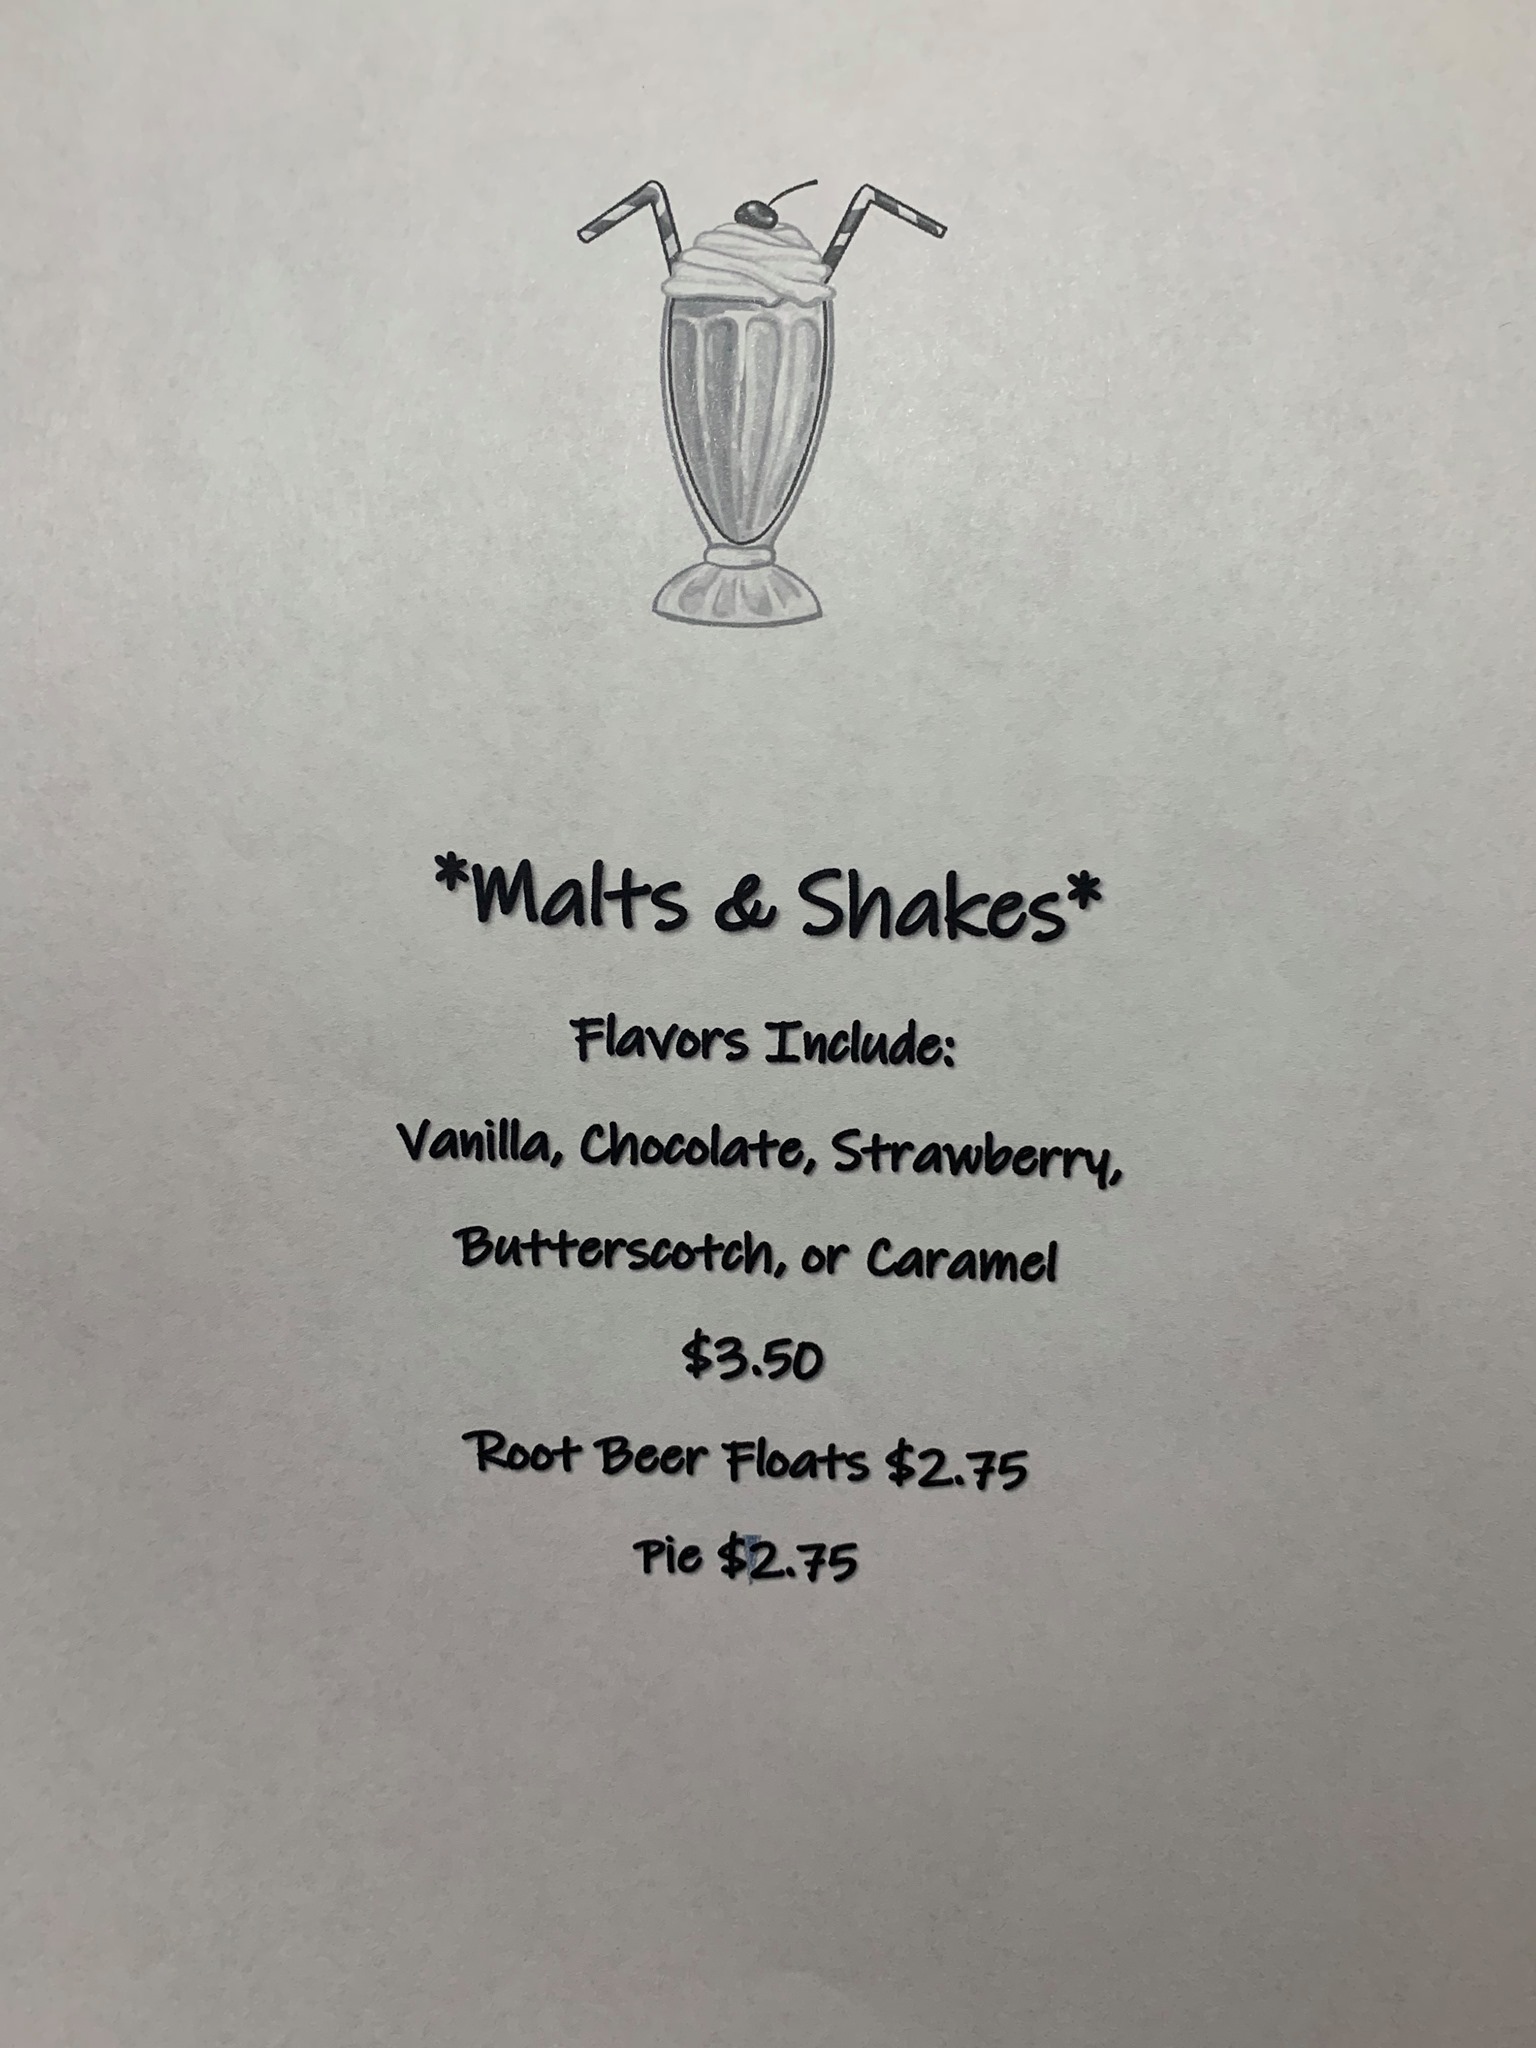 *Malts & Shakes*
Flavors Include:
Vanilla, Chocolate, Strawberry,
Butterscotch, or Caramel
$3.50
Root Beer Floats $2.75
Pie $2.75